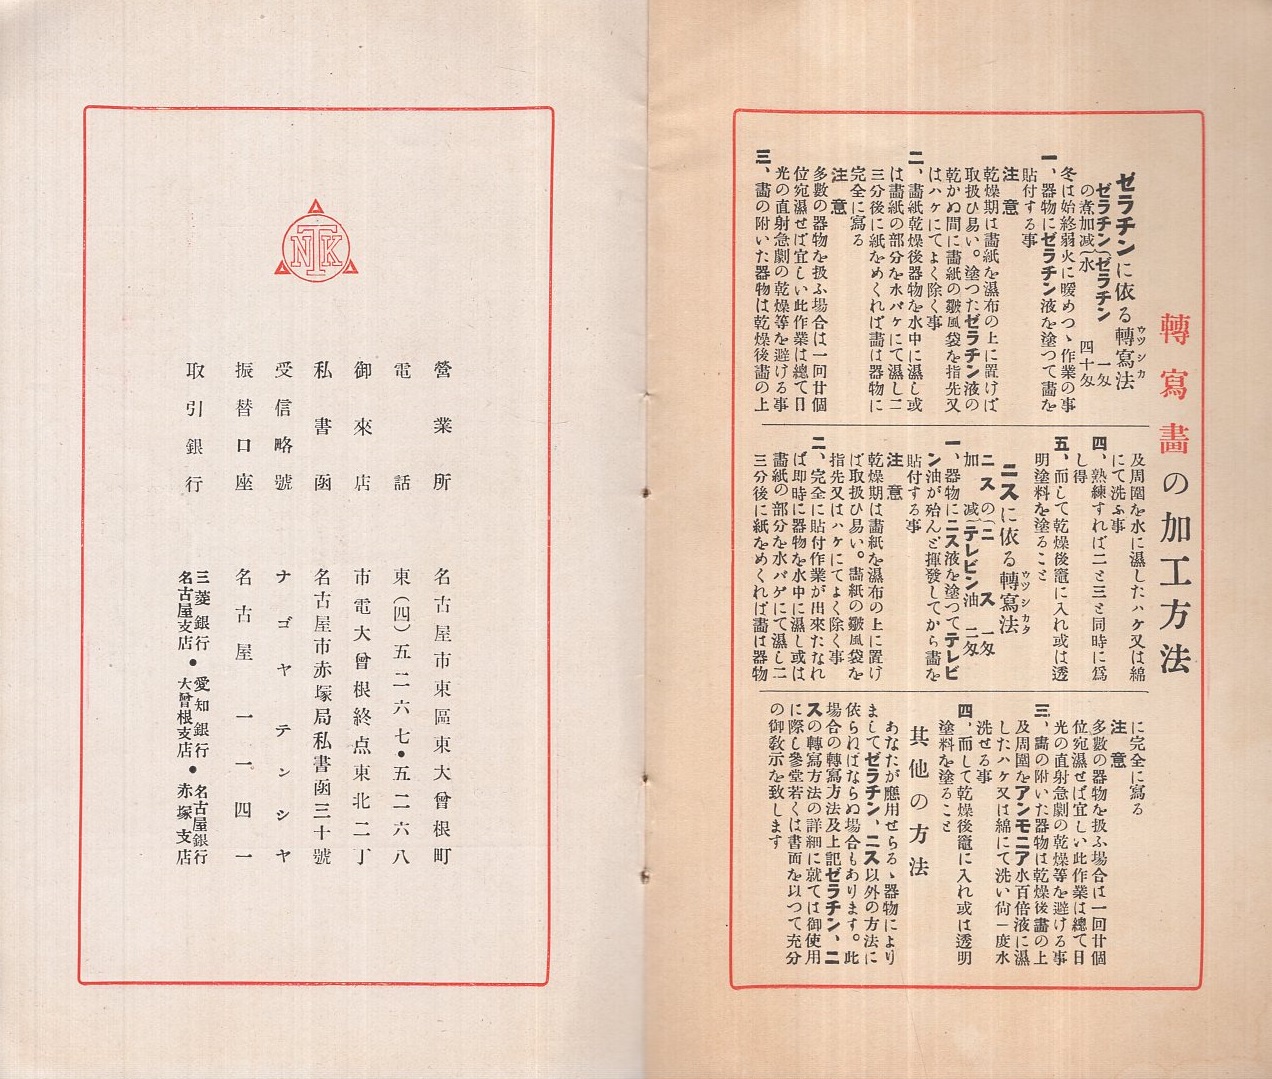 轉寫畵の加工方法
ゼラチンに依る轉寫法
ウツシカ
ゼラチン(ゼラチン 一匁
の煮加减(水 四十匁
冬は始終弱火に暖めつゝ作業の事
一、器物にゼラチン液を塗つて畵を
貼付する事
注意
乾燥期は畵紙を濕布の上に置けば
取扱ひ易い。塗つたゼラチン液の
乾かぬ間に畵紙の皺風袋を指先又
はハケにてよく除く事
二、畵紙乾燥後器物を水中に濕し或
は畵紙の部分を水バケにて濕し二
三分後に紙をめくれば畵は器物に
完全に寫る
注意
多數の器物を扱ふ場合は一回廿個
位宛濕せば宜しい此作業は總て日
光の直射急劇の乾燥等を避ける事
三、畵の附いた器物は乾燥後畵の上
及周圍を水に濕したハケ又は綿
にて洗ふ事
四、熟練すれば二と三と同時に爲
し得
五、而して乾燥後竈に入れ或は透
明塗料を塗ること
ニスに依る轉寫法
ウツシカタ
ニスの(ニス 一匁
加减(テレビン油 二匁
一、器物にニス液を塗つてテレビ
ン油が殆んど揮發してから畵を
貼付する事
注意
乾燥期は畵紙を濕布の上に置け
ば取扱ひ易い。畵紙の皺風袋を
指先又はハケにてよく除く事
二、完全に貼付作業が出來たなれ
ば即時に器物を水中に濕し或は
畵紙の部分を水バケにて濕し二
三分後に紙をめくれば畵は器物
に完全に寫る
注意
多數の器物を扱ふ場合は一回廿個
位宛濕せば宜しい此作業は總て日
光の直射急劇の乾燥等を避ける事
三、畵の附いた器物は乾燥後畵の上
及周圍をアンモニア水百倍液に濕
したハケ又は綿にて洗い尙一度水
洗せる事
四、而して乾燥後竈に入れ或は透明
塗料を塗ること
其他の方法
あなたが應用せらるゝ器物により
ましてゼラチン、ニス以外の方法に
依らねばならぬ場合もあります。此
場合の轉寫方法及上記ゼラチン、ニ
スの轉寫方法の詳細に就ては御使用
に際し參堂若くは書面を以つて充分
の御敎示を致します
NTK
營業所 名古屋市東區東大曾根町
御來店 市電大曾根終点東北二丁
電話 東(四)五二六七・五二六八
私書函 名古屋市赤塚局私書函三十號
受信略號 ナゴヤ テンシヤ
振替口座 名古屋 一一四一
取引銀行 三菱銀行名古屋支店・愛知銀行大曾根支店・名古屋銀行赤塚支店